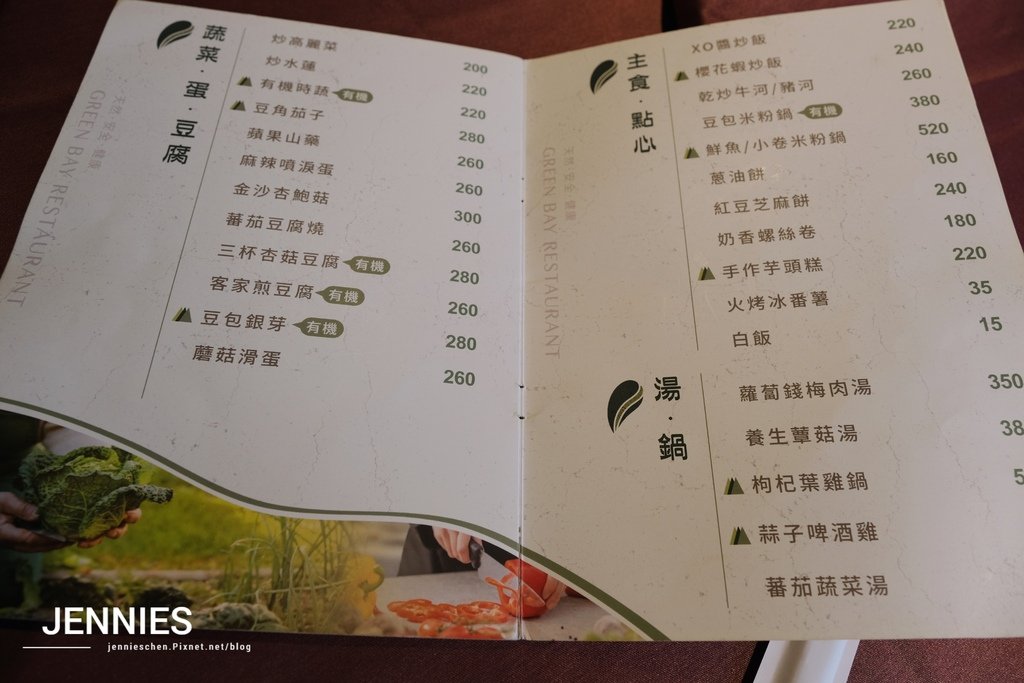 蔬菜·蛋·豆腐
天然 安全 健康
GREEN BAY RESTAURANT
炒高麗菜 200
炒水蓮 220
有機時蔬 有機 220
豆角茄子 280
蘋果山藥 260
麻辣噴淚蛋 260
金沙杏鮑菇 300
蕃茄豆腐燒 260
三杯杏菇豆腐 有機 280
客家煎豆腐 有機 260
豆包銀芽 有機 280
蘑菇滑蛋 260
主食·點心
天然 安全 健康
GREEN BAY RESTAURANT
XO醬炒飯 220
櫻花蝦炒飯 240
乾炒牛河/豬河 260
豆包米粉鍋 有機 380
鮮魚/小卷米粉鍋 520
蔥油餅 160
紅豆芝麻餅 240
奶香螺絲卷 180
手作芋頭糕 220
火烤冰番薯 35
白飯 15
湯·鍋
蘿蔔錢梅肉湯 350
養生蕈菇湯 38
枸杞葉雞鍋 5
蒜子啤酒雞
蕃茄蔬菜湯
JENNIES
jennieschen.Pixnet.net/blog